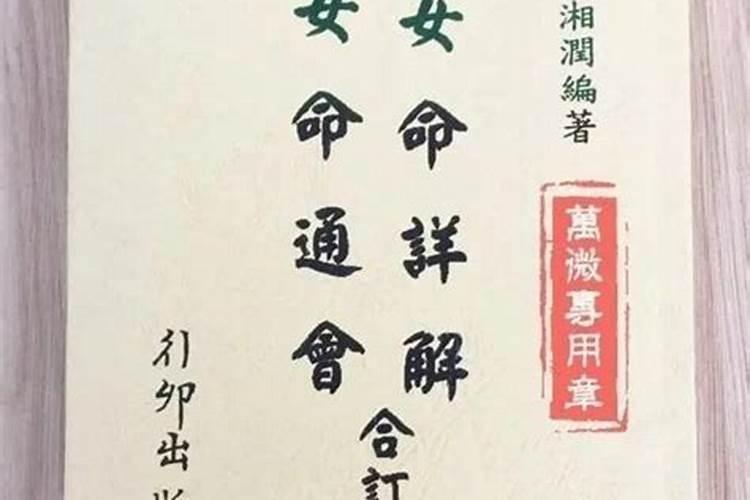 湘潤編著
萬微專用章
女命詳解
女命通會
合訂
行卯出